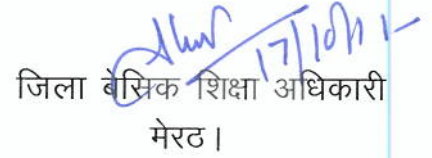 17/10/11
जिला बेसिक शिक्षा अधिकारी
मेरठ।